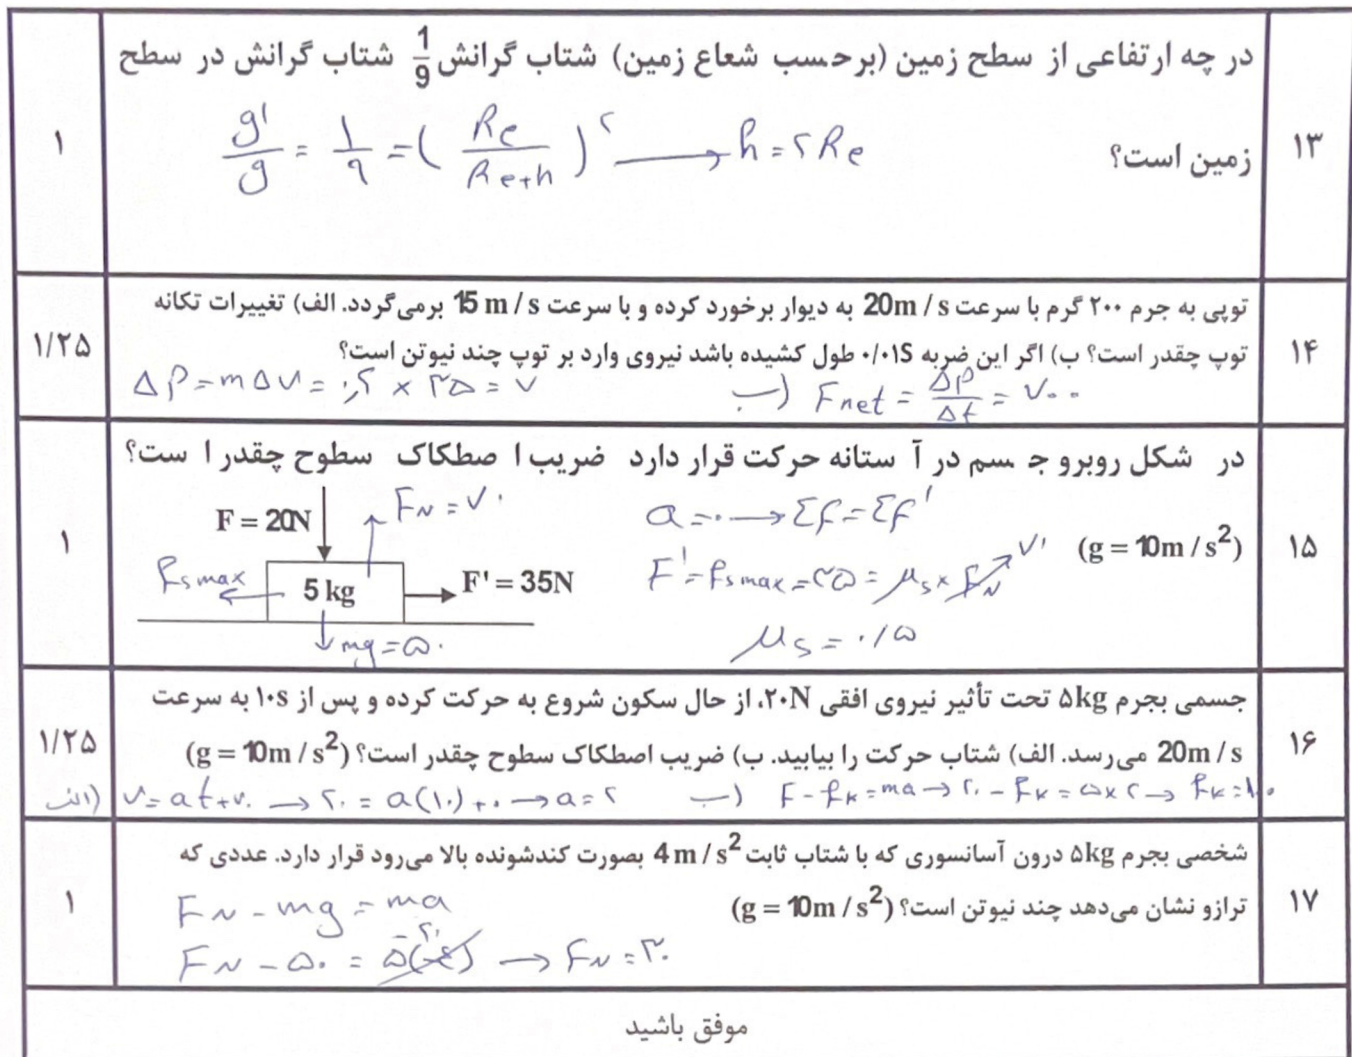 ۱۳
در چه ارتفاعی از سطح زمین (برحسب شعاع زمین) شتاب گرانش 1/9 شتاب گرانش در سطح
زمین است؟
g'/g = ۱/۹ = (Re/Re+h)^۲ → h = ۲Re
۱
۱۴
توپی به جرم ۲۰۰ گرم با سرعت 20m/s به دیوار برخورد کرده و با سرعت 15 m/s برمی‌گردد. الف) تغییرات تکانه
توپ چقدر است؟ ب) اگر این ضربه ۰/۰۱S طول کشیده باشد نیروی وارد بر توپ چند نیوتن است؟
ΔP = mΔv = ۰٫۲ × ۳۵ = ۷
ب) Fnet = ΔP/Δt = ۷۰۰
۱/۲۵
۱۵
در شکل روبرو جسم در آستانه حرکت قرار دارد ضریب اصطکاک سطوح چقدر است؟
(g = 10m/s²)
a = ۰ → Σf = Σf'
F' = fsmax = ۳۵ = μs × FN ۷۰
μs = ۰/۵
F = 20N
FN = ۷۰
fsmax
5 kg
F' = 35N
mg = ۵۰
۱
۱۶
جسمی بجرم ۵kg تحت تأثیر نیروی افقی ۲۰N، از حال سکون شروع به حرکت کرده و پس از ۱۰s به سرعت
20m/s می‌رسد. الف) شتاب حرکت را بیابید. ب) ضریب اصطکاک سطوح چقدر است؟ (g = 10m/s²)
الف) v = at + v۰ → ۲۰ = a(۱۰) + ۰ → a = ۲
ب) F - fk = ma → ۲۰ - fk = ۵ × ۲ → fk = ۱۰
۱/۲۵
۱۷
شخصی بجرم ۵kg درون آسانسوری که با شتاب ثابت 4m/s² بصورت کندشونده بالا می‌رود قرار دارد. عددی که
ترازو نشان می‌دهد چند نیوتن است؟ (g = 10m/s²)
FN - mg = ma
FN - ۵۰ = ۵(-۴) -۲۰ → FN = ۳۰
۱
موفق باشید